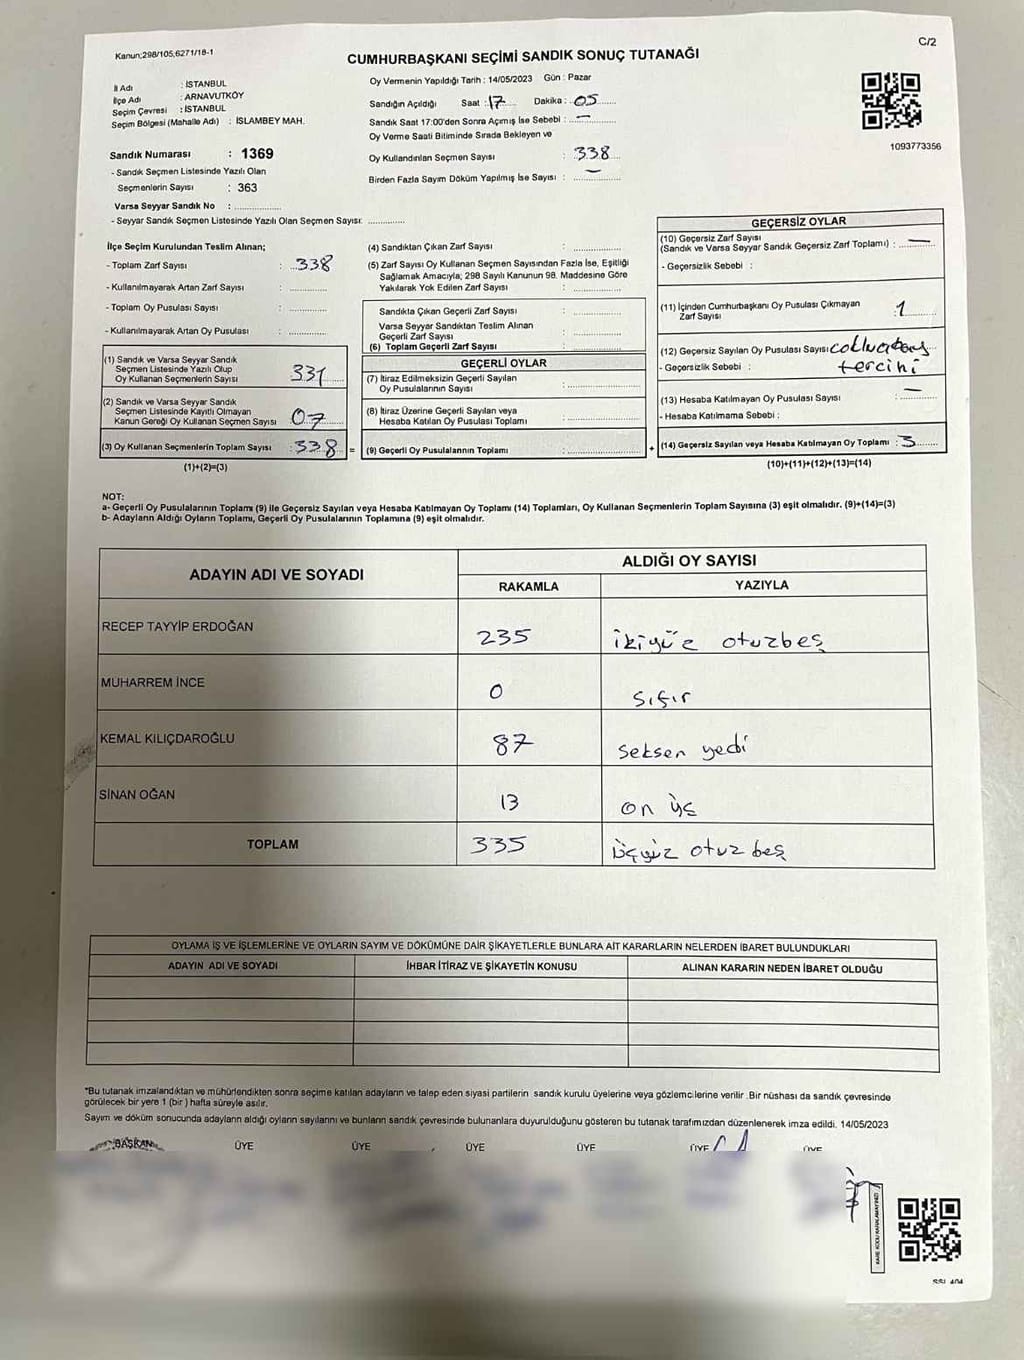 Kanun:298/105,6271/18-1
C/2
CUMHURBAŞKANI SEÇİMİ SANDIK SONUÇ TUTANAĞI
İl Adı : İSTANBUL
İlçe Adı : ARNAVUTKÖY
Seçim Çevresi : İSTANBUL
Seçim Bölgesi (Mahalle Adı) : İSLAMBEY MAH.
Sandık Numarası : 1369
- Sandık Seçmen Listesinde Yazılı Olan
Seçmenlerin Sayısı : 363
Varsa Seyyar Sandık No :
- Seyyar Sandık Seçmen Listesinde Yazılı Olan Seçmen Sayısı:
Oy Vermenin Yapıldığı Tarih : 14/05/2023 Gün : Pazar
Sandığın Açıldığı Saat : 17 Dakika : 05
Sandık Saat 17:00'den Sonra Açmış İse Sebebi : —
Oy Verme Saati Bitiminde Sırada Bekleyen ve
Oy Kullandırılan Seçmen Sayısı : 338
Birden Fazla Sayım Döküm Yapılmış İse Sayısı : —
1093773356
İlçe Seçim Kurulundan Teslim Alınan;
- Toplam Zarf Sayısı : 338
- Kullanılmayarak Artan Zarf Sayısı :
- Toplam Oy Pusulası Sayısı :
- Kullanılmayarak Artan Oy Pusulası :
(1) Sandık ve Varsa Seyyar Sandık
Seçmen Listesinde Yazılı Olup
Oy Kullanan Seçmenlerin Sayısı 331
(2) Sandık ve Varsa Seyyar Sandık
Seçmen Listesinde Kayıtlı Olmayan
Kanun Gereği Oy Kullanan Seçmen Sayısı 07
(3) Oy Kullanan Seçmenlerin Toplam Sayısı : 338
(1)+(2)=(3)
(4) Sandıktan Çıkan Zarf Sayısı :
(5) Zarf Sayısı Oy Kullanan Seçmen Sayısından Fazla İse, Eşitliği
Sağlamak Amacıyla; 298 Sayılı Kanunun 98. Maddesine Göre
Yakılarak Yok Edilen Zarf Sayısı :
Sandıkta Çıkan Geçerli Zarf Sayısı :
Varsa Seyyar Sandıktan Teslim Alınan
Geçerli Zarf Sayısı :
(6) Toplam Geçerli Zarf Sayısı :
GEÇERLİ OYLAR
(7) İtiraz Edilmeksizin Geçerli Sayılan
Oy Pusulalarının Sayısı :
(8) İtiraz Üzerine Geçerli Sayılan veya
Hesaba Katılan Oy Pusulası Toplamı :
= (9) Geçerli Oy Pusulalarının Toplamı :
GEÇERSİZ OYLAR
(10) Geçersiz Zarf Sayısı
(Sandık ve Varsa Seyyar Sandık Geçersiz Zarf Toplamı) : —
- Geçersizlik Sebebi :
(11) İçinden Cumhurbaşkanı Oy Pusulası Çıkmayan
Zarf Sayısı : 1
(12) Geçersiz Sayılan Oy Pusulası Sayısı
- Geçersizlik Sebebi :
(13) Hesaba Katılmayan Oy Pusulası Sayısı : —
- Hesaba Katılmama Sebebi :
+ (14) Geçersiz Sayılan veya Hesaba Katılmayan Oy Toplamı : 3
(10)+(11)+(12)+(13)=(14)
NOT:
a- Geçerli Oy Pusulalarının Toplamı (9) ile Geçersiz Sayılan veya Hesaba Katılmayan Oy Toplamı (14) Toplamları, Oy Kullanan Seçmenlerin Toplam Sayısına (3) eşit olmalıdır. (9)+(14)=(3)
b- Adayların Aldığı Oyların Toplamı, Geçerli Oy Pusulalarının Toplamına (9) eşit olmalıdır.
ADAYIN ADI VE SOYADI
ALDIĞI OY SAYISI
RAKAMLA YAZIYLA
RECEP TAYYİP ERDOĞAN 235 ikiyüz otuzbeş
MUHARREM İNCE 0 sıfır
KEMAL KILIÇDAROĞLU 87 seksen yedi
SİNAN OĞAN 13 on üç
TOPLAM 335 üçyüz otuz beş
OYLAMA İŞ VE İŞLEMLERİNE VE OYLARIN SAYIM VE DÖKÜMÜNE DAİR ŞİKAYETLERLE BUNLARA AİT KARARLARIN NELERDEN İBARET BULUNDUKLARI
ADAYIN ADI VE SOYADI İHBAR İTİRAZ VE ŞİKAYETİN KONUSU ALINAN KARARIN NEDEN İBARET OLDUĞU
*Bu tutanak imzalandıktan ve mühürlendikten sonra seçime katılan adayların ve talep eden siyasi partilerin sandık kurulu üyelerine veya gözlemcilerine verilir .Bir nüshası da sandık çevresinde
görülecek bir yere 1 (bir ) hafta süreyle asılır.
Sayım ve döküm sonucunda adayların aldığı oyların sayılarını ve bunların sandık çevresinde bulunanlara duyurulduğunu gösteren bu tutanak tarafımızdan düzenlenerek imza edildi. 14/05/2023
BAŞKAN ÜYE ÜYE ÜYE ÜYE ÜYE ÜYE